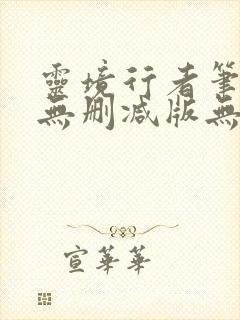 靈境行者筆
無刪減版無
宣華華